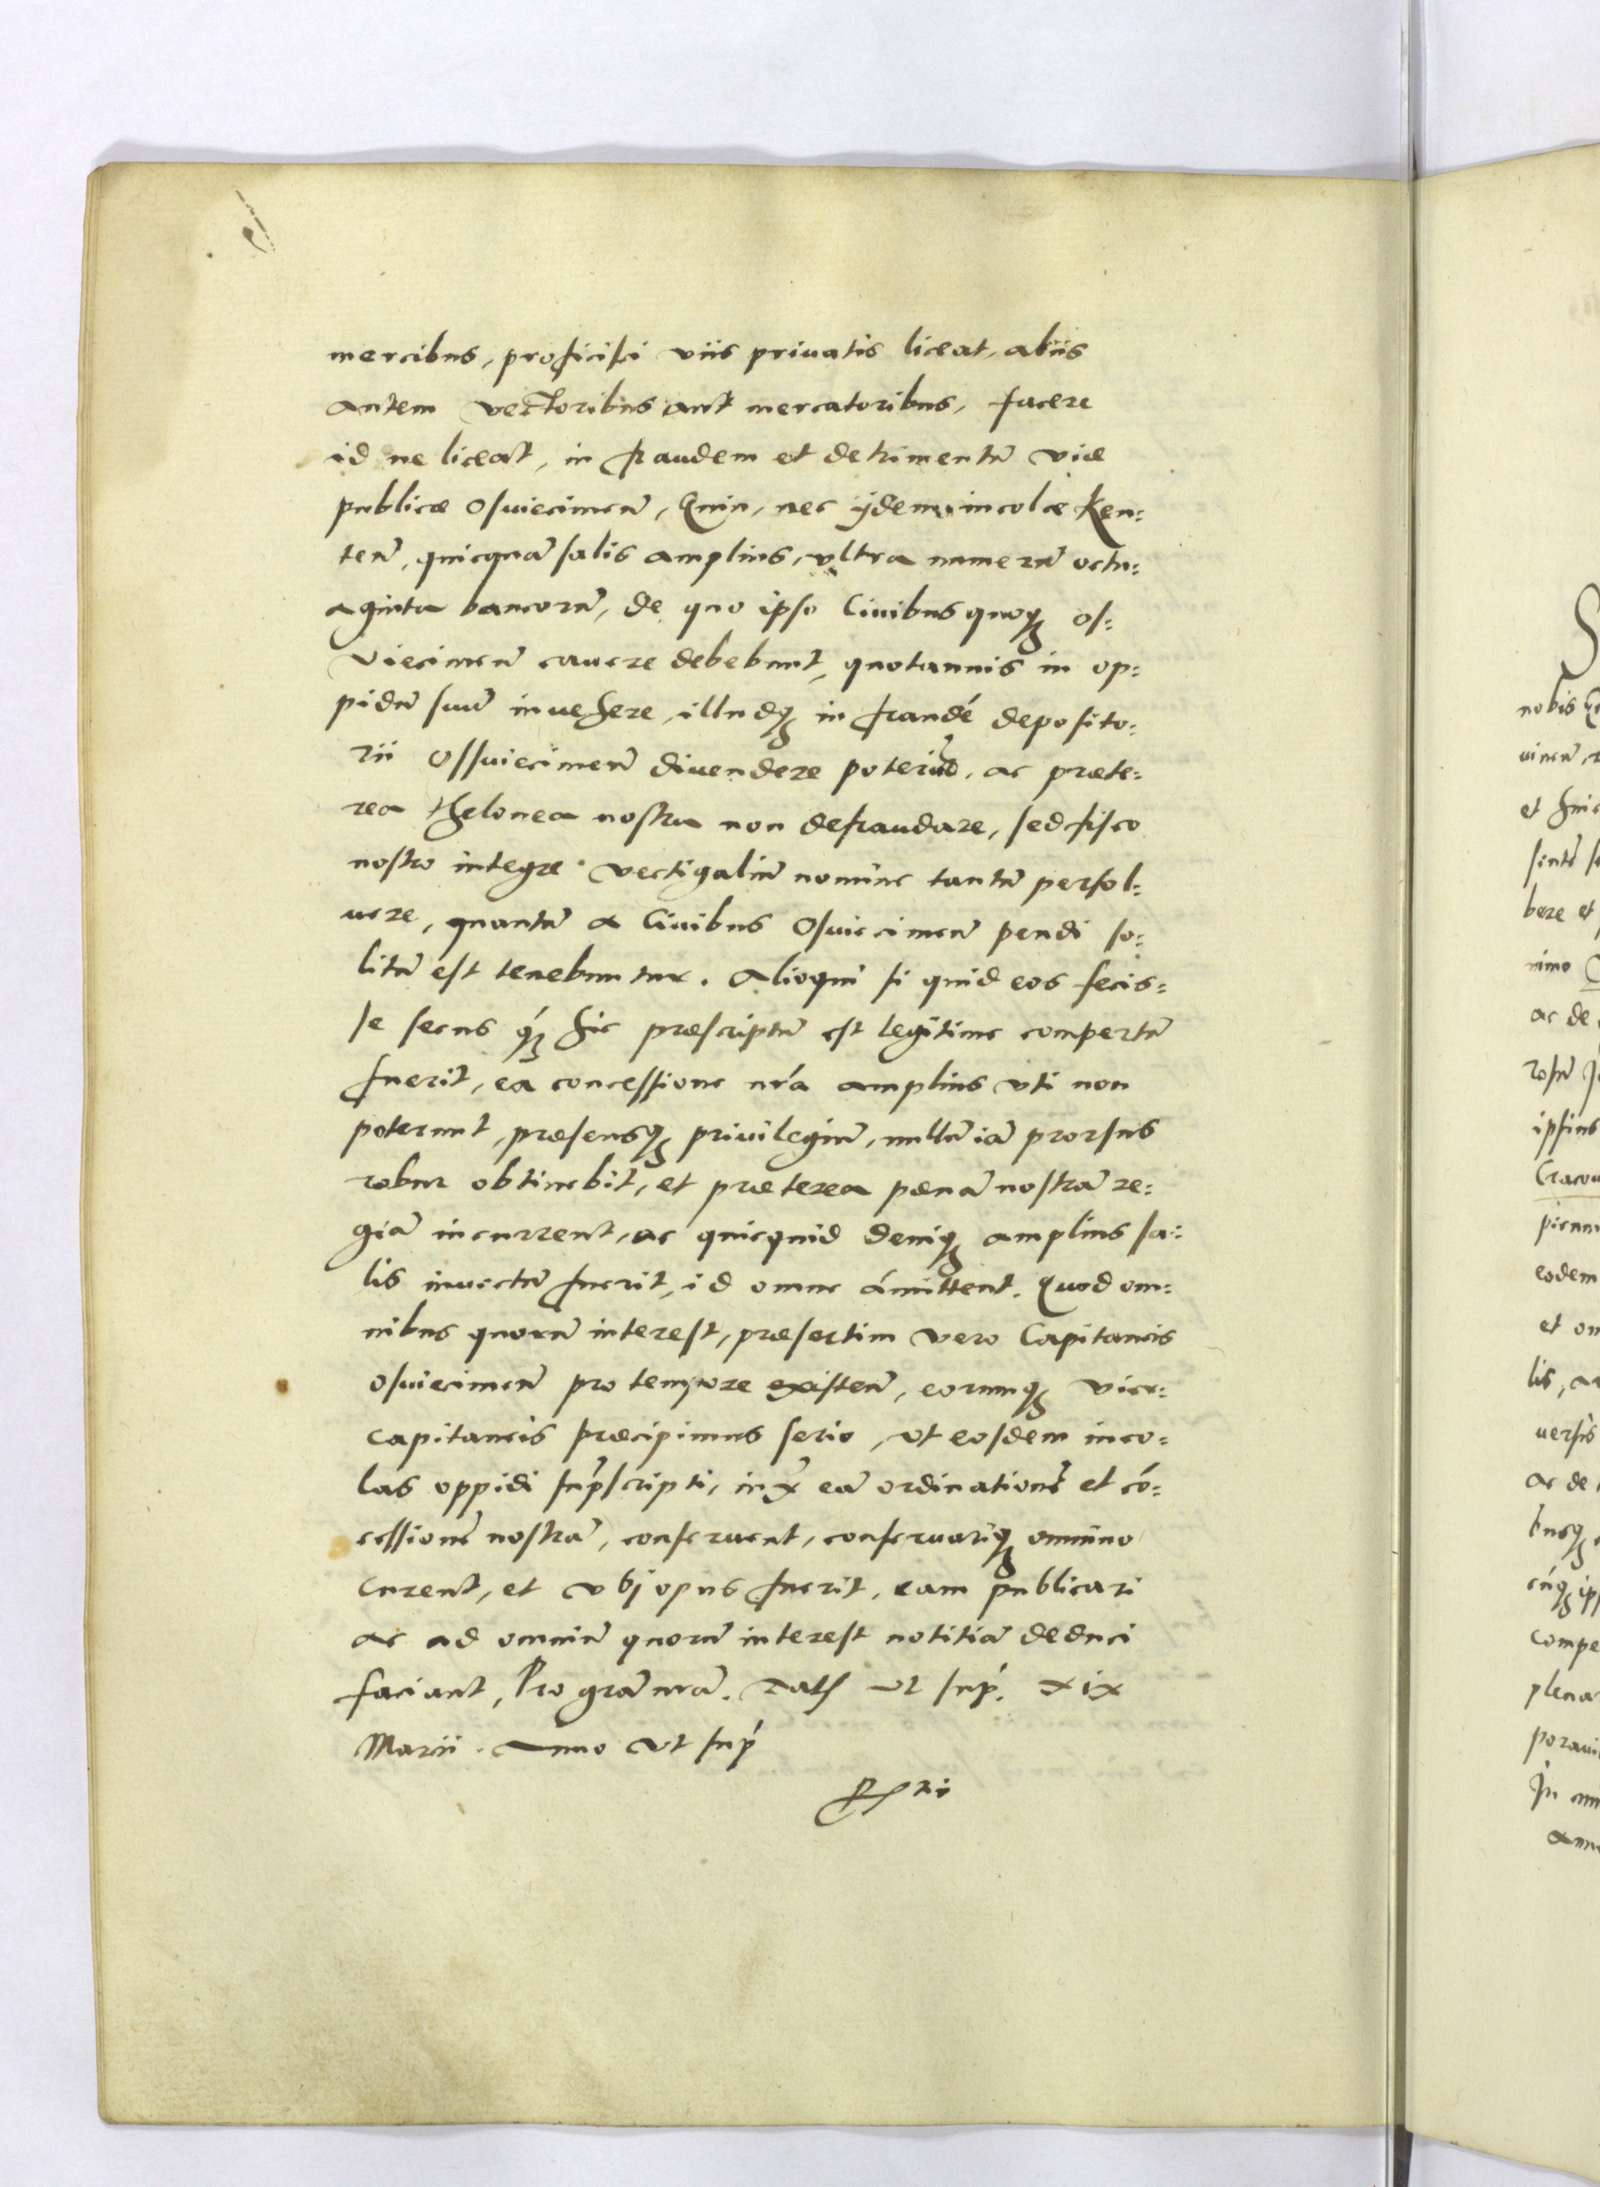 mercibus, proficisci viis privatis liceat, aliis
autem vectoribus aut mercatoribus, facere
id ne liceat, in fraudem et detrimentũ viæ
publicæ Osviecimeñ, Quin, nec ijdem incolæ Ken:
teñ, quicquã salis amplius, ultra numerũ octu:
aginta bancorũ, de quo ipso Civibus quoqȝ Os:
viecimeñ cavere debebunt, quotannis in op:
pidũ suũ invehere, illudqȝ in fraudẽ deposito:
rii Ossviecimeñ divendere poterũt, ac præte:
rea thelonea nostra non defraudare, sed fisco
nostro integre vectigaliũ nomine tantũ persol:
vere, quantũ a Civibus Osviecimeñ pendi so:
litũ est tenebuntur. Alioqui si quid eos fecis:
se secus qȝ́ hic præscriptũ est legitime compertũ
fuerit, eã concessione nr̃a amplius uti non
poterunt, præsensqȝ privilegiũ, nullũ iã prorsus
robur obtinebit, et præterea pænã nostrã re:
giã incurrent, ac quicquid deniqȝ amplius sa:
lis invectũ fuerit, id omne amittent. Quod om:
nibus quorũ interest, præsertim vero Capitaneis
Osviecimeñ pro tempore existeñ, eorumqȝ vice:
capitaneis præcipimus serio, ut eosdem inco:
las oppidi sup̃scripti, iux̃ eã ordinationẽ et cõ:
cessionẽ nostrã, conservent, conservariqȝ omnino
curent, et ubi opus fuerit, eam publicari
ac ad omniũ quorũ interest notitiã deduci
faciant, Pro grã nr̃a. Dat̃ ut sup̃. xix
Marcii. Anno ut sup̃